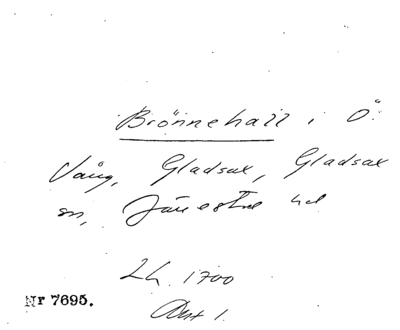 Brönnehall i Ö.
Vång, Gladsax, Gladsax
sn, Järrestad hd
Lh. 1700
Akt 1.
Nr 7695.